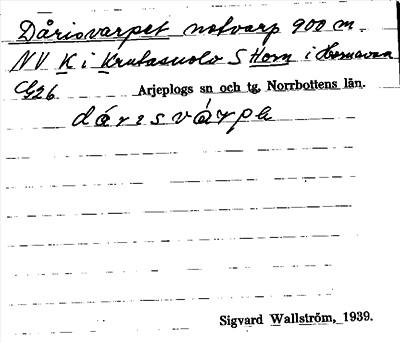 Dårisvarpet notvarp 900 m.
NV K i Krutasuolo S Horn i Hornavan
G26 Arjeplogs sn och tg, Norrbottens län.
dárisvárpe
Sigvard Wallström, 1939.